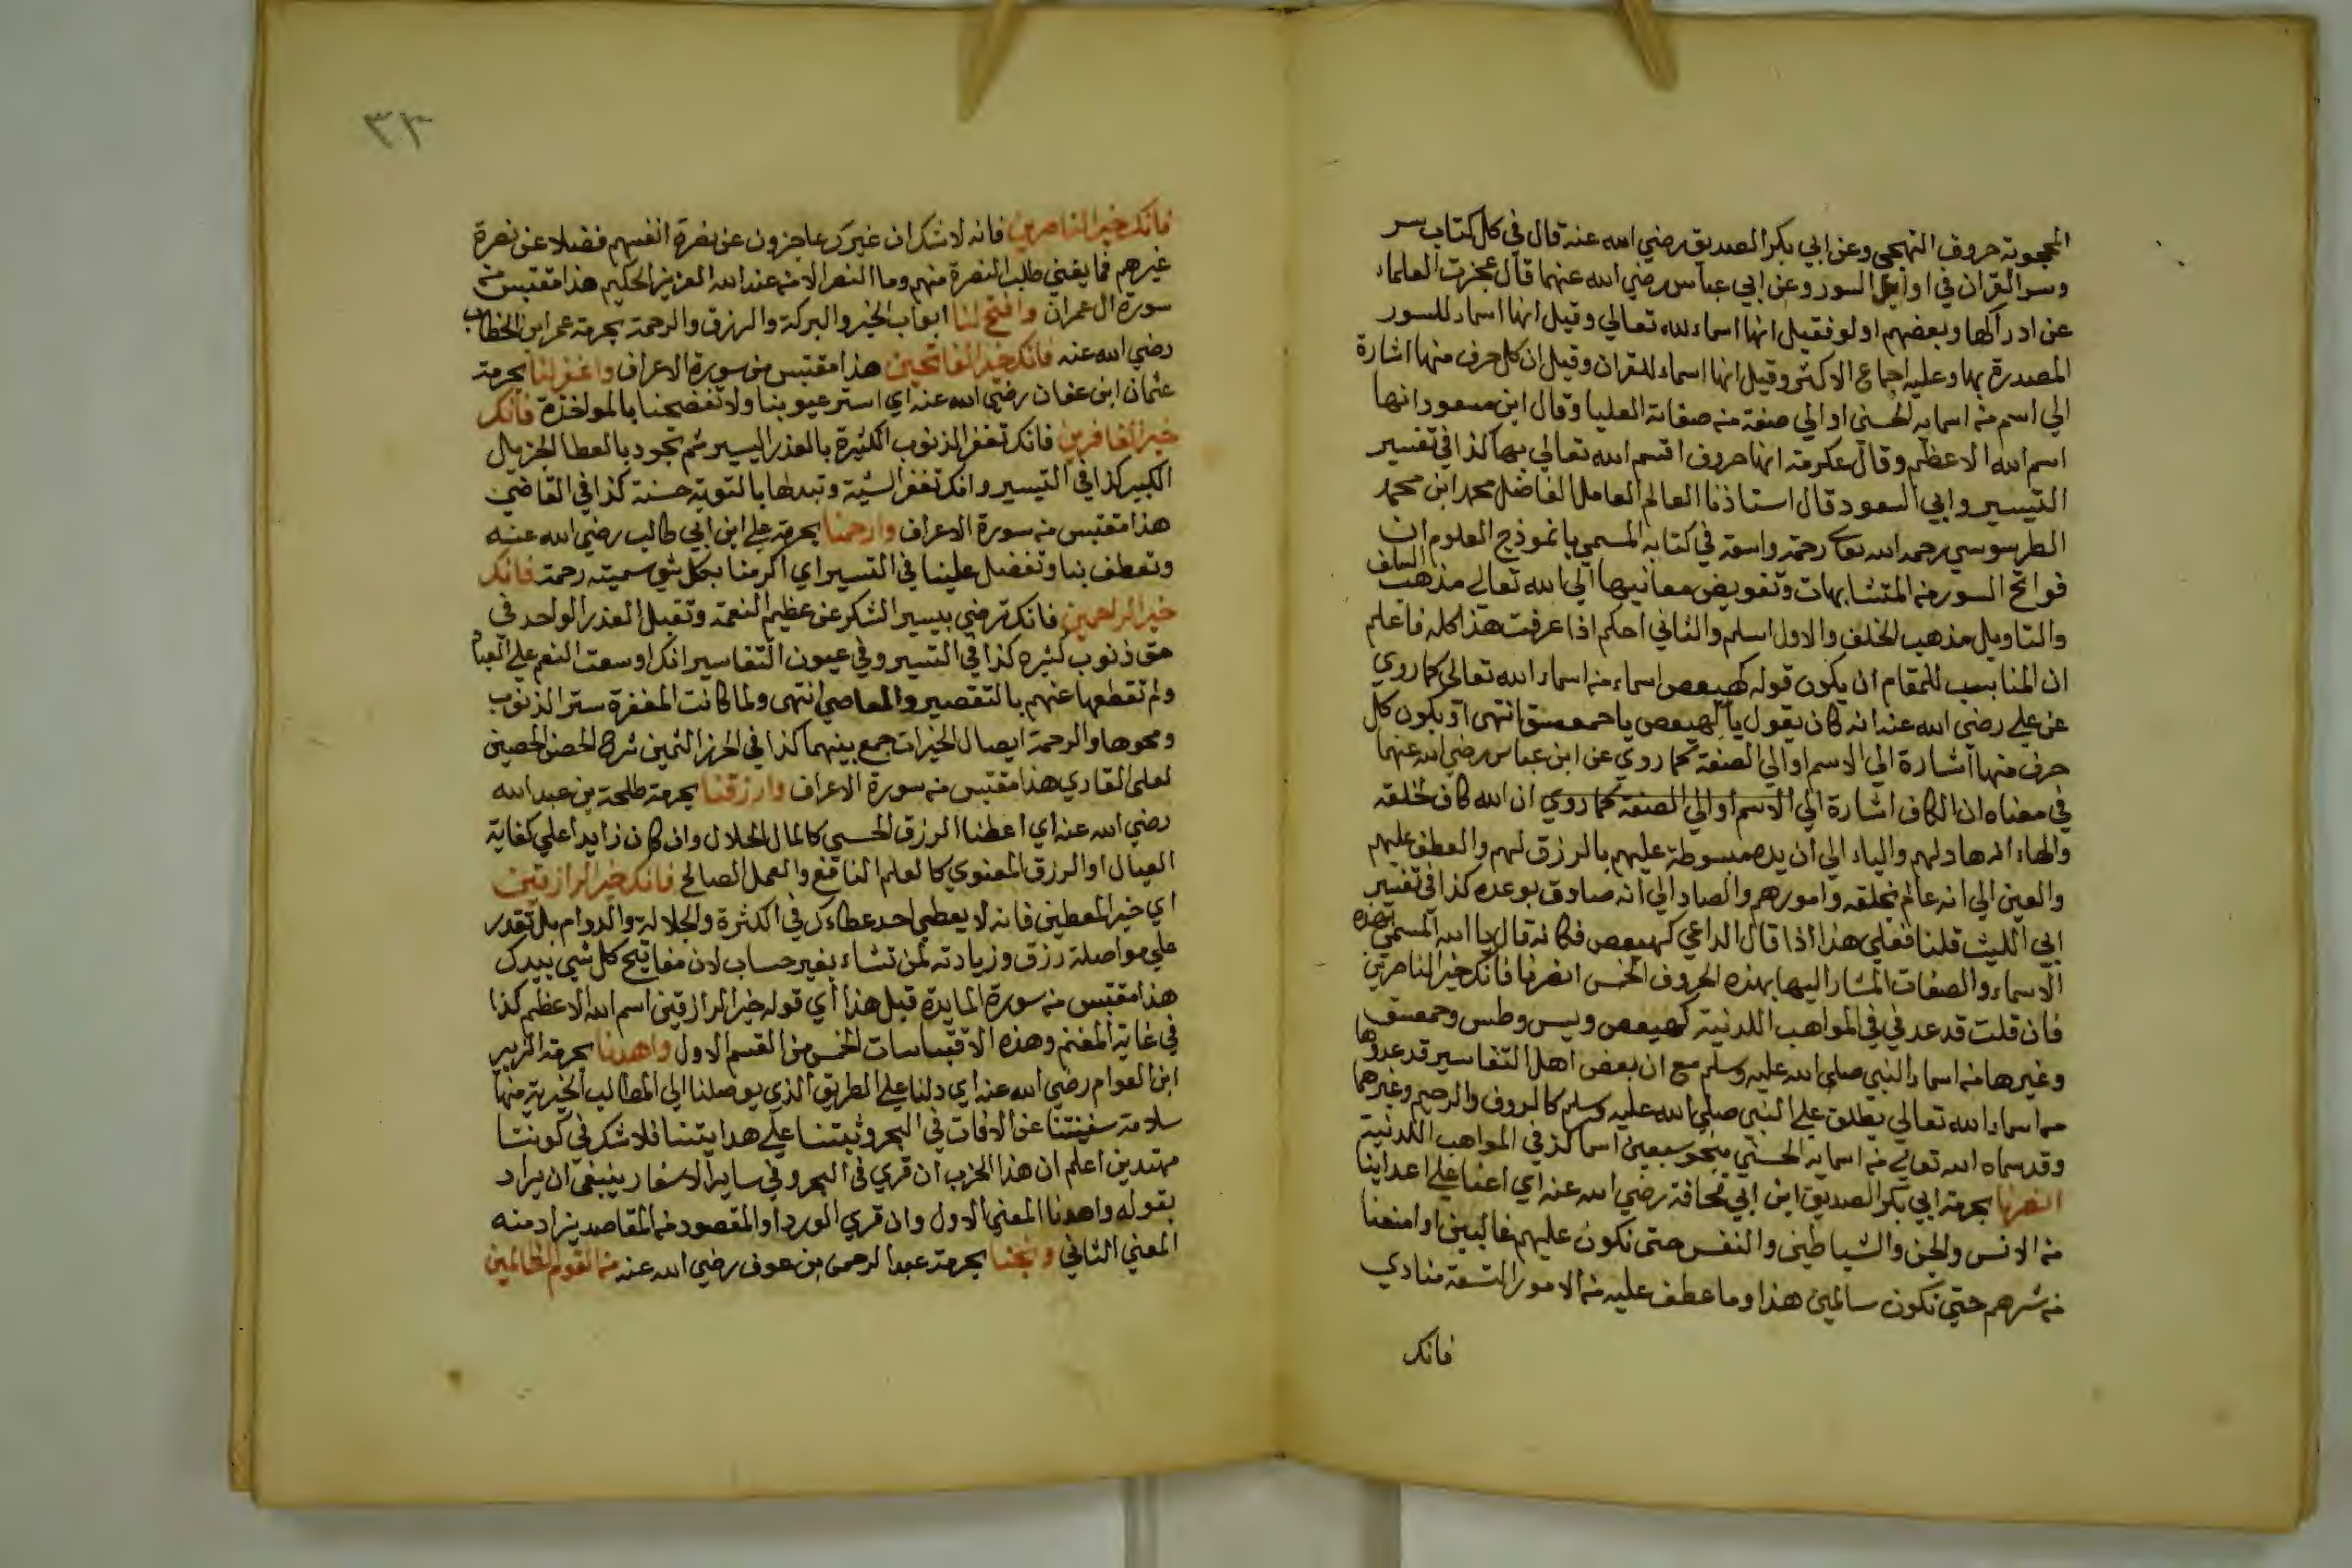 المحجوبة حروف التهجي وعن ابي بكر الصديق رضي الله عنه قال في كل كتاب سر
وسر القران في اوايل السور وعن ابي عباس رضي الله عنهما قال عجزت العلماء
عن ادراكها وبعضهم اولو فقيل انها اسماء لله تعالي وقيل انها اسماء للسور
المصدرة بها وعليه اجماع الاكثر وقيل انها اسماء للقران وقيل ان كل حرف منها اشارة
الي اسم من اسمايه الحسني او الي صفة من صفاته العليا وقال ابن مسعود انها
اسم الله الاعظم وقال عكرمة انها حروف اقسم الله تعالي بها كذا في تفسير
التيسير وابي السعود قال استاذنا العالم العامل الفاضل محمد ابن محمد
الطرسوسي رحمه الله تعالي رحمة واسعة في كتابه المسمي بانموذج العلوم ان
فواتح السور من المتشابهات وتفويض معانيها الي الله تعالي مذهب السلف
والتاويل مذهب الخلف والاول اسلم والثاني احكم اذا عرفت هذا كله فاعلم
ان المناسب للمقام ان يكون قوله كهيعص اسماء من اسماء الله تعالي كما روي
عن علي رضي الله عنه انه كان يقول يا كهيعص يا حمعسق انتهي او يكون كل
حرف منها اشارة الي الاسم او الي الصفة كما روي عن ابن عباس رضي الله عنهما
في معناه ان الكاف اشارة الي الاسم او الي الصفة كما روي ان الله كاف لخلقه
والهاء انه هاد لهم والياء الي ان يده مبسوطة عليهم بالرزق لهم والعطف عليهم
والعين الي انه عالم بخلقه وامورهم والصاد الي انه صادق بوعده كذا في تفسير
ابي الليث قلنا فعلي هذا اذا قال الداعي كهيعص فكانه قال يا الله المسمي بهذه
الاسماء والصفات المشار اليها بهذه الحروف الخمس انصرنا فانك خير الناصرين
فان قلت قد عد في في المواهب اللدنية كهيعص ويس وطس وحمعسق
وغيرها من اسماء النبي صلي الله عليه وسلم مع ان بعض اهل التفاسير قد عدوها
من اسماء الله تعالي يطلق علي النبي صلي الله عليه وسلم كالروف والرحيم وغيرهما
وقد سماه الله تعالي من اسمايه الحسني بنحو سبعين اسما كذ في المواهب اللدنية
انصرنا بحرمة ابي بكر الصديق ابن ابي قحافة رضي الله عنه اي اعنا علي اعداينا
من الانس والجن والشياطين والنفس حتي نكون عليهم غالبين او امنعنا
من شرهم حتي نكون سالمين هذا وما عطف عليه من الامور التسعة منادي
فانك
٣٣
فانك خير الناصرين فانه لا شك ان غيرك عاجزون عن نصرة انفسهم فضلا عن نصرة
غيرهم فما يغني طلب النصرة منهم وما النصر الا من عند الله العزيز الحكيم هذا مقتبس من
سورة ال عمران وافتح لنا ابواب الخير والبركة والرزق والرحمة بحرمة عمر ابن الخطاب
رضي الله عنه فانك خير الفاتحين هذا مقتبس من سورة الاعراف واغفر لنا بحرمة
عثمان ابن عفان رضي الله عنه اي استر عيوبنا ولا تفضحنا بالمواخذة فانك
خير الغافرين فانك تغفر الذنوب الكثيرة بالعذر اليسير ثم تجود بالعطا الجزيل
الكبير كذا في التيسير وانك تغفر السيئة وتبدلها بالتوبة حسنة كذا في القاضي
هذا مقتبس من سورة الاعراف وارحمنا بحرمة علي ابن ابي طالب رضي الله عنه
وتعطف بنا وتفضل علينا في التسير اي اكرمنا بكل شي سميته رحمة فانك
خير الراحمين فانك ترضي بيسير الشكر عن عظيم النعمة وتقبل العذر الواحد في
حق ذنوب كثيره كذا في التسير وفي عيون التفاسير انك اوسعت النعم علي العباد
ولم تقطعها عنهم بالتقصير والمعاصي انتهي ولما كانت المغفرة ستر الذنوب
ومحوها والرحمة ايصال الخيرات جمع بينهما كذا في الحرز الثمين شرح الحصن الحصين
لعلي القاري هذا مقتبس من سورة الاعراف وارزقنا بحرمة طلحة بن عبد الله
رضي الله عنه اي اعطنا الرزق الحسي كالمال الحلال وان كان زايدا علي كفاية
العيال او الرزق المعنوي كالعلم النافع والعمل الصالح فانك خير الرازقين
اي خير المعطين فانه لا يعطي احد عطاءك في الكثرة والجلالة والدوام بل تقدر
علي مواصلة رزق وزيادته لمن تشاء بغير حساب لان مفاتيح كل شي بيدك
هذا مقتبس من سورة المايدة قيل هذا اي قوله خير الرازقين اسم الله الاعظم كذا
في غاية المغنم وهذه الاقتباسات الخمس من القسم الاول واهدنا بحرمة الزبير
ابن العوام رضي الله عنه اي دلنا علي الطريق الذي يوصلنا الي المطالب الخيرية منها
سلامة سفينتنا عن الافات في البحر وثبتنا علي هدايتنا فلا شك في كوننا
مهتدين اعلم ان هذا الحزب ان قري في البحر وفي ساير الاسفار ينبغي ان يراد
بقوله واهدنا المعني الاول وان قري الورد او المقصود من المقاصد يزاد منه
المعني الثاني ونجنا بحرمة عبد الرحمن بن عوف رضي الله عنه من القوم الظالمين